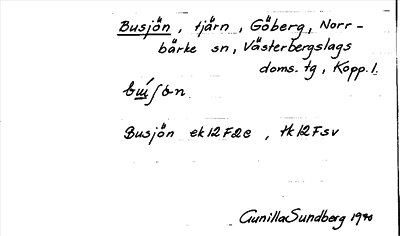 Busjön, tjärn, Göberg, Norr-
bärke sn, Västerbergslags
doms. tg, Kopp. l.
Busjön ek12F2c, tk12Fsv
Gunilla Sundberg 1970